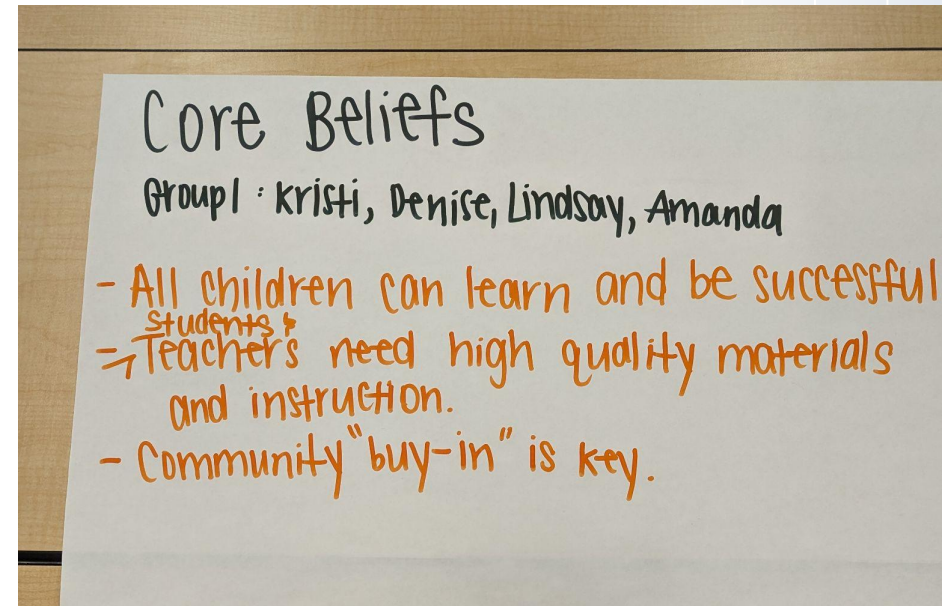 Core Beliefs
Group 1 : Kristi, Denise, Lindsay, Amanda
- All children can learn and be successful
students &
- Teachers need high quality materials
and instruction.
- Community "buy-in" is key.